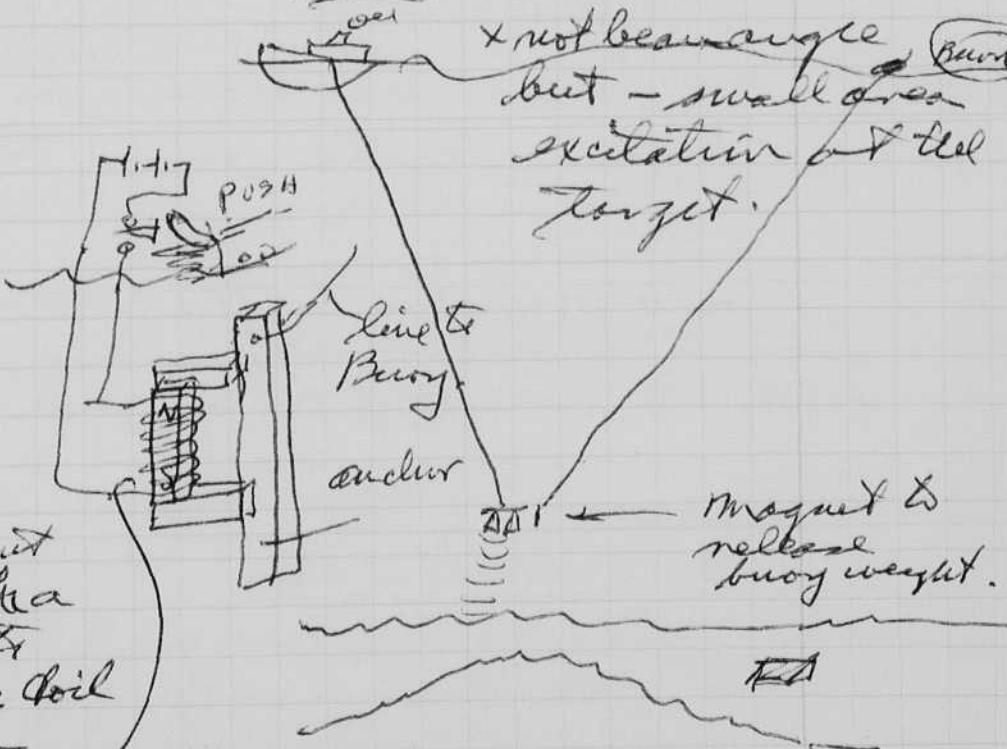 x not beam angle
Buoy
but - small area
excitation at the
target.
PUSH
line to
Buoy.
anchor
Magnet to
release
buoy weight.
N
a
coil